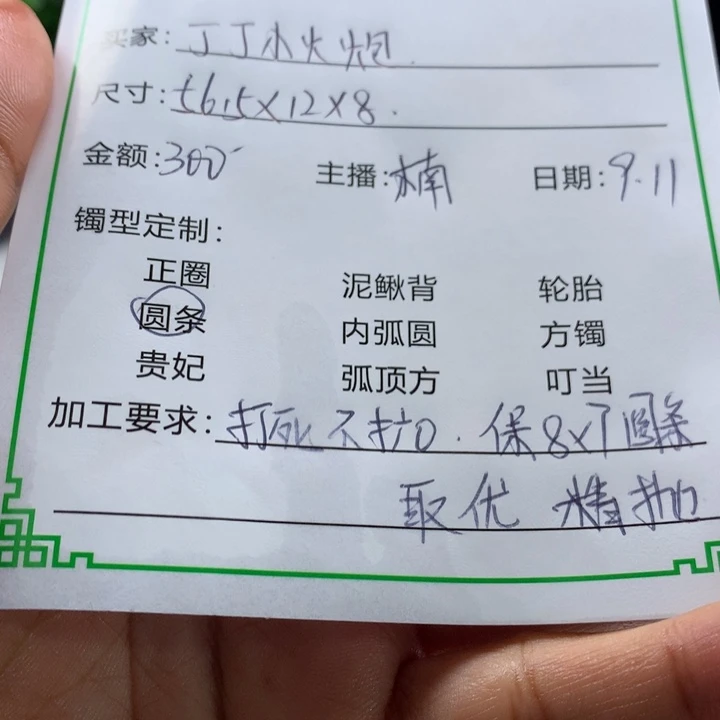 买家: 丁丁小火炮
尺寸: 56.5X12X8.
金额: 300 主播: 楠 日期: 9.11
镯型定制:
正圈 泥鳅背 轮胎
圆条 内弧圆 方镯
贵妃 弧顶方 叮当
加工要求: 打死不扩. 保8X 圆条
取优 精抛